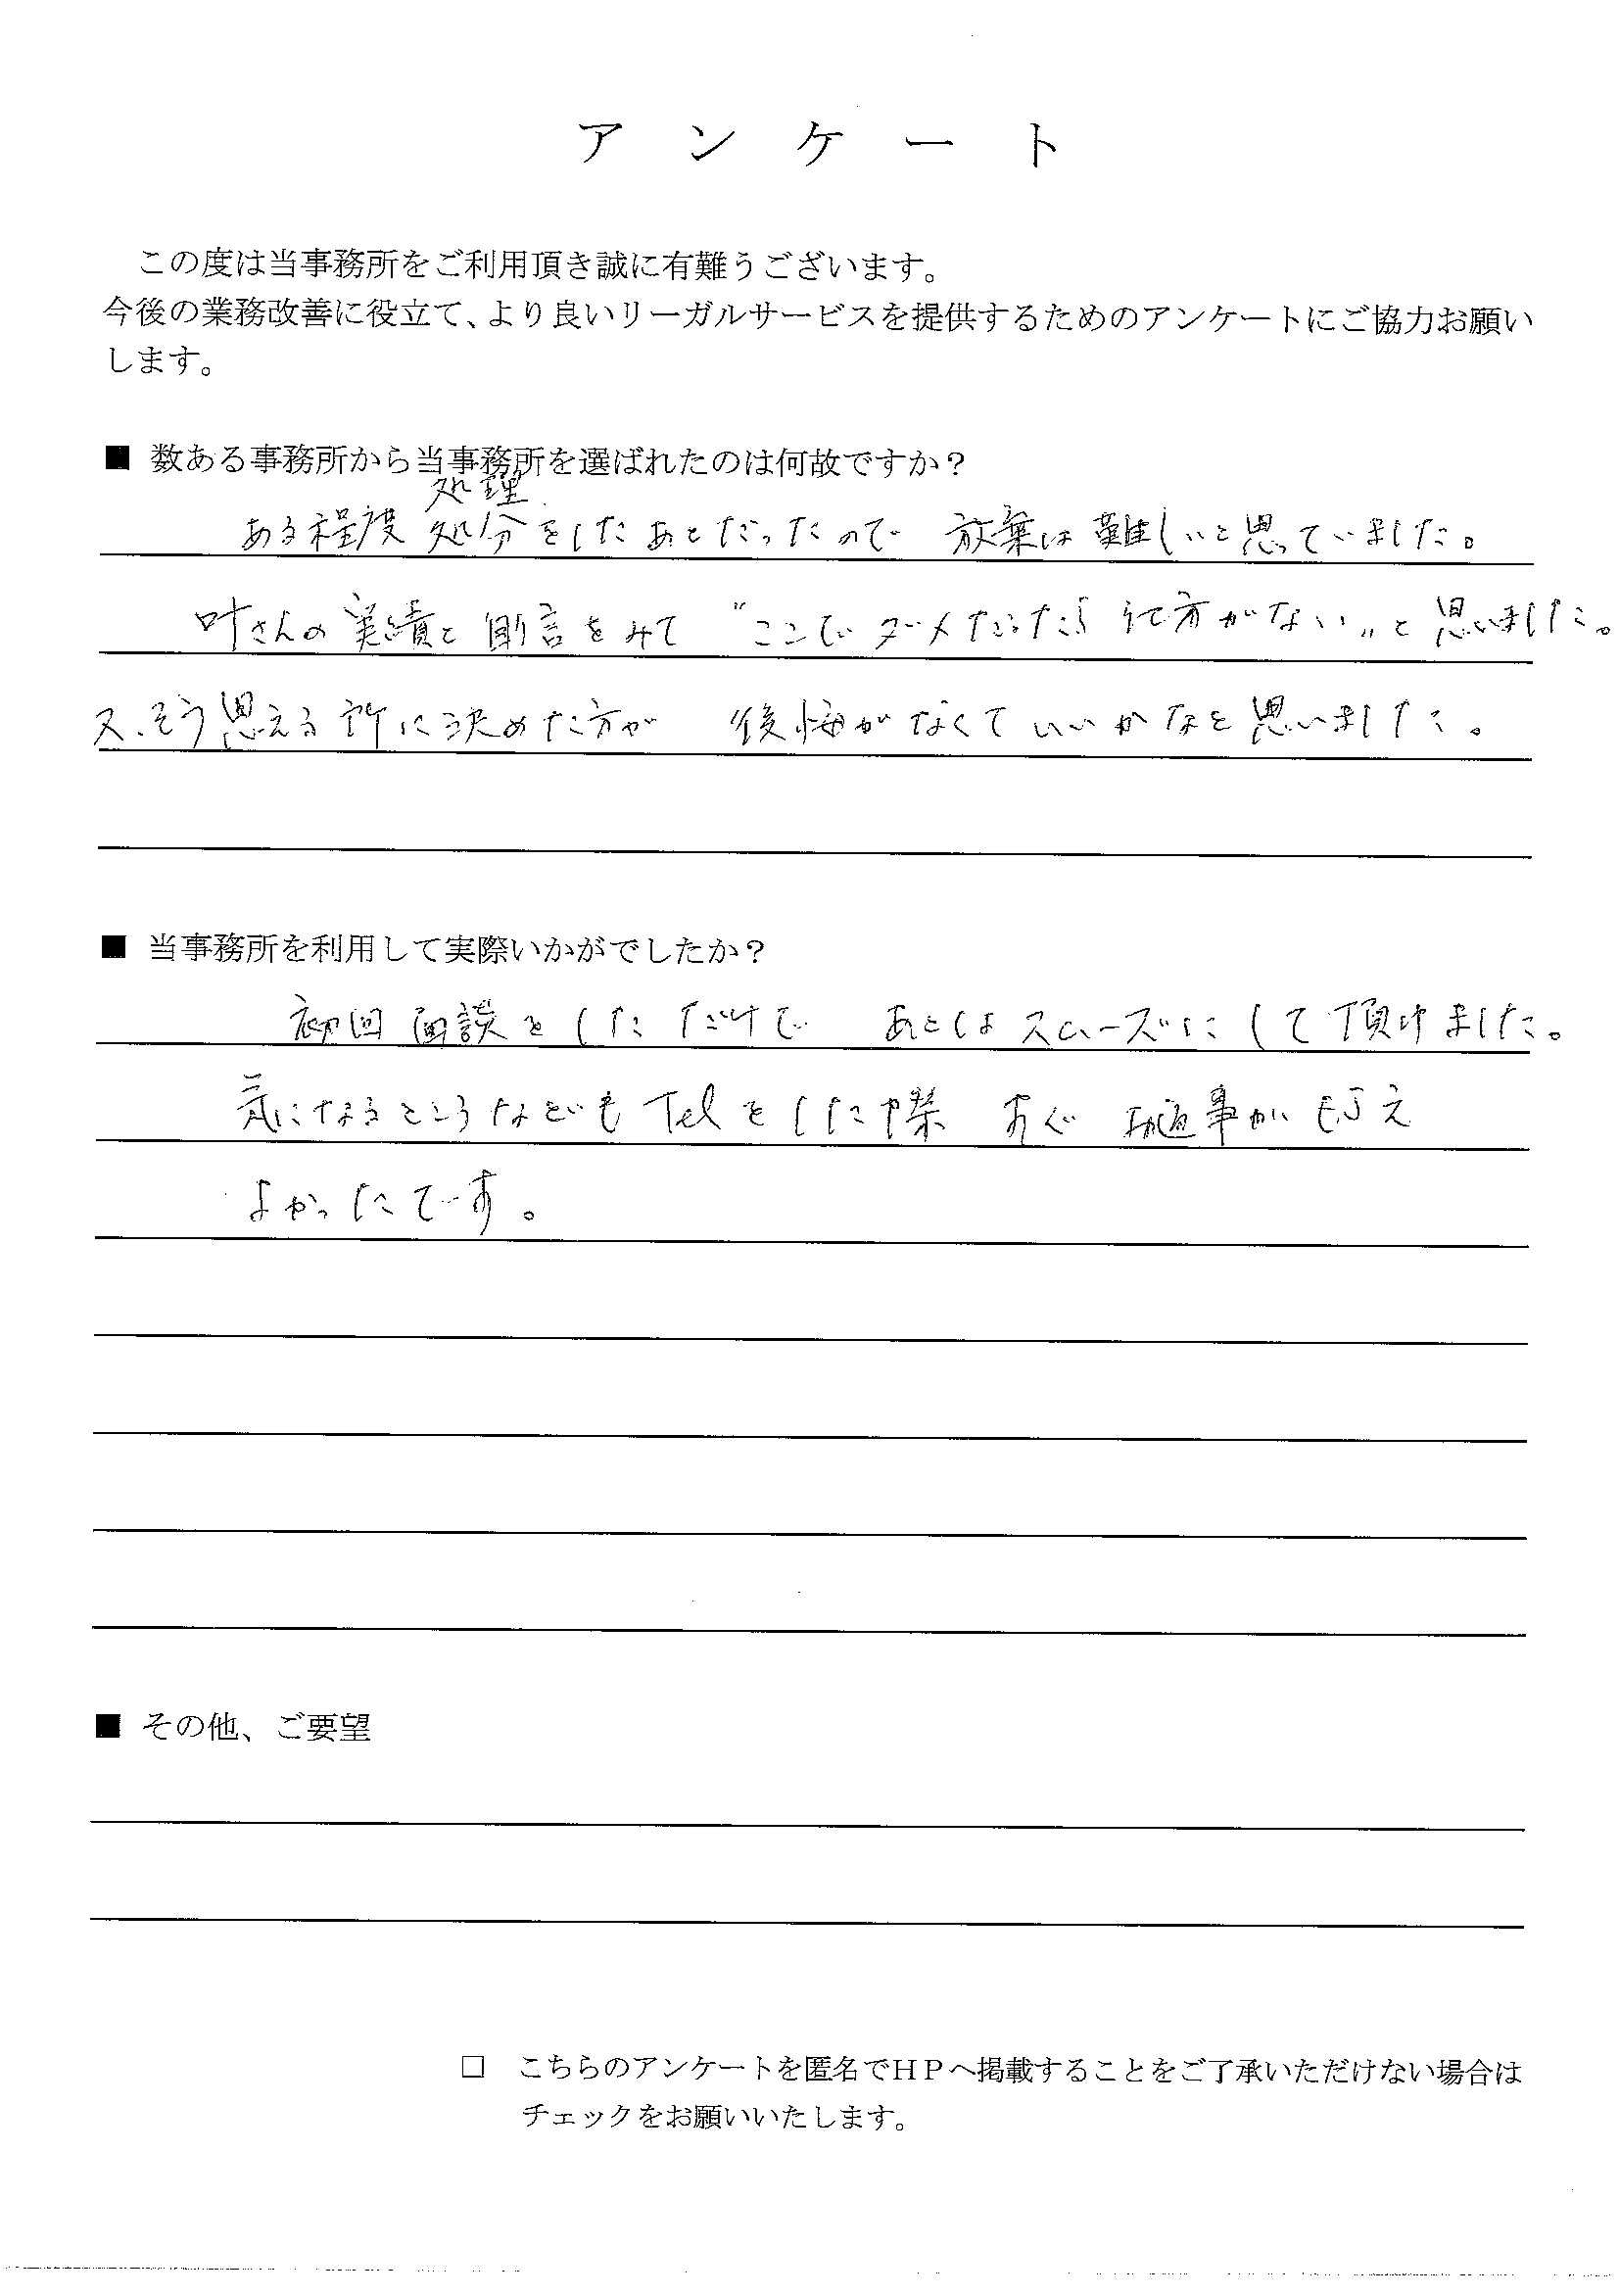 アンケート
この度は当事務所をご利用頂き誠に有難うございます。
今後の業務改善に役立て、より良いリーガルサービスを提供するためのアンケートにご協力お願い
します。
■ 数ある事務所から当事務所を選ばれたのは何故ですか？
処理
ある程度 処分をしたあとだったので 放棄は難しいと思っていました。
叶さんの実績と 助言をみて "ここでダメだったら 仕方がない"と思いました。
又、そう思える所に決めた方が 後悔がなくていいかなと思いました。
■ 当事務所を利用して実際いかがでしたか？
初回 面談をしただけで あとはスムーズにして頂けました。
気になるところなども Telをした際 すぐ お返事がもらえ
よかったです。
■ その他、ご要望
□ こちらのアンケートを匿名でＨＰへ掲載することをご了承いただけない場合は
チェックをお願いいたします。